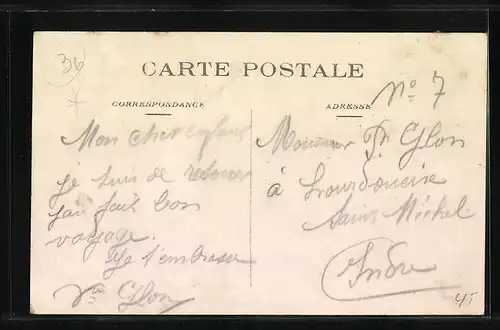 36
CARTE POSTALE
CORRESPONDANCE
ADRESSE
N° 7
Mon cher enfant
je suis de retour
jai fait bon
voyage.
Je t'embrasse
Ve Glon
Monsieur Glon
à Lourdoueix
Saint Michel
Indre
45